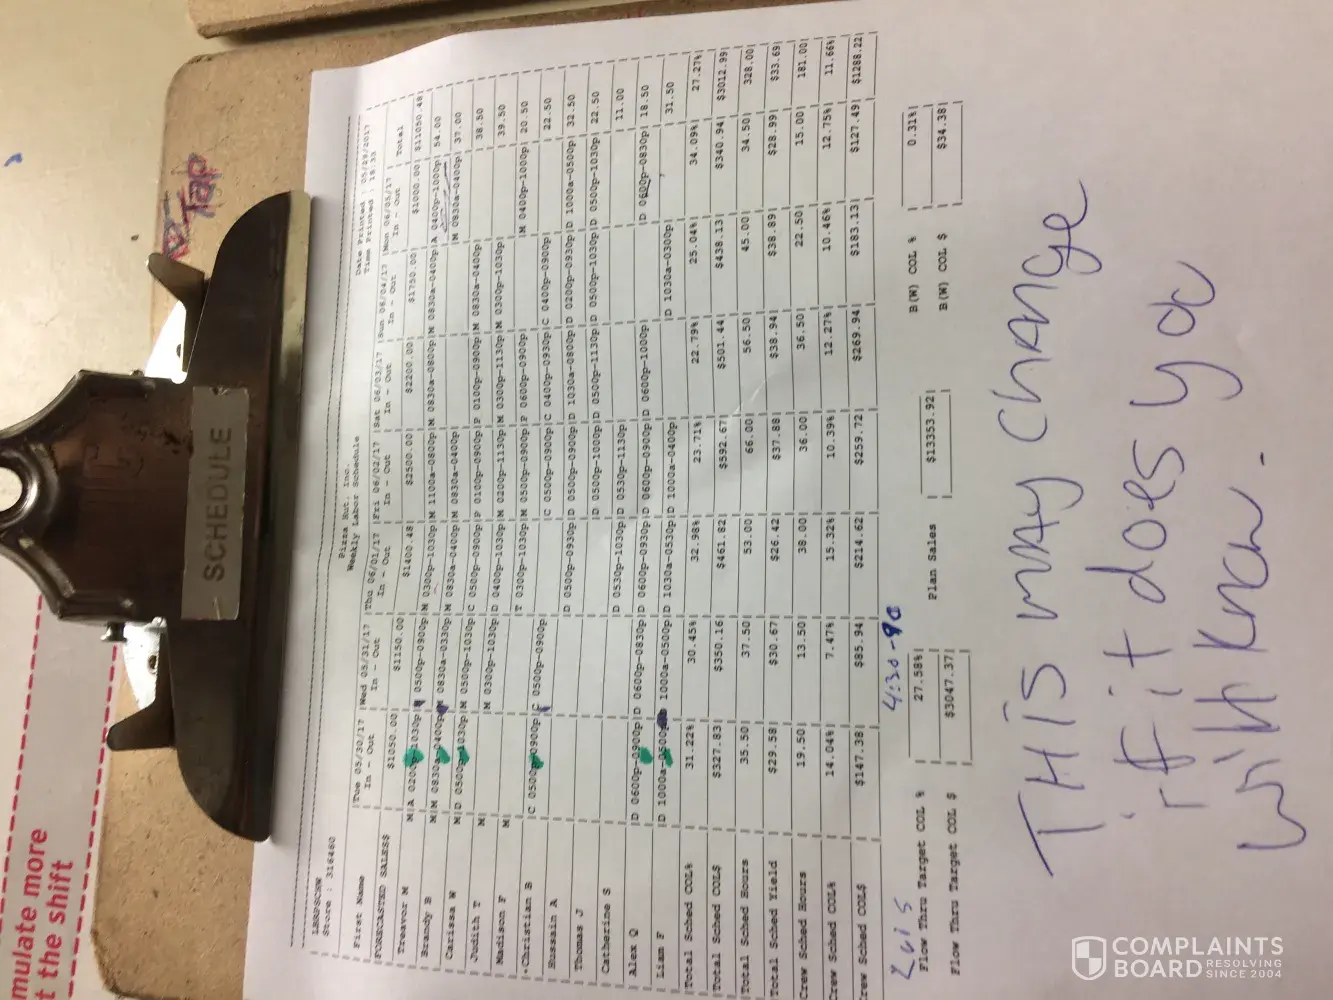 mulate more
t the shift
SCHEDULE
Tap
Pizza Hut, Inc.
Weekly Labor Schedule
Date Printed : 05/29/2017
Time Printed : 18:33
Store : 316460
First Name |Tue 05/30/17 |Wed 05/31/17 |Thu 06/01/17 |Fri 06/02/17 |Sat 06/03/17 |Sun 06/04/17 |Mon 06/05/17 |Total
In - Out In - Out In - Out In - Out In - Out In - Out In - Out
FORECASTED SALES$ $1050.00 $1150.00 $1400.48 $2500.00 $2200.00 $1750.00 $1000.00 $11050.48
Treavor M M|A 0200p-1030p|M 0500p-0900p|M 0300p-1030p|M 1100a-0800p|M 0830a-0800p|M 0830a-0400p|A 0400p-1000p| 54.00
Brandy B M|M 0830a-0400p|M 0830a-0330p|M 0830a-0400p|M 0830a-0400p| | |M 0830a-0400p| 37.00
Carissa W M|D 0500p-1030p|M 0500p-1030p|C 0500p-0900p|F 0100p-0900p|F 0100p-0900p|M 0830a-0400p| | 38.50
Judith T M| |M 0300p-1030p|D 0400p-1030p|M 0200p-1130p|M 0300p-1130p|M 0300p-1030p| | 39.50
Madison F M| | |T 0300p-1030p|M 0500p-0900p|F 0600p-0900p| |M 0400p-1000p| 20.50
*Christian B |C 0500p-0900p|C 0500p-0900p| |C 0500p-0900p|C 0400p-0930p|C 0400p-0900p| | 22.50
Hussain A | | |D 0500p-0930p|D 0500p-0900p|D 1030a-0800p|D 0200p-0930p|D 1000a-0500p| 32.50
Thomas J | | | |D 0500p-1000p|D 0500p-1130p|D 0500p-1030p|D 0500p-1030p| 22.50
Catherine S | | |D 0530p-1030p|D 0530p-1130p| | | | 11.00
Alex Q |D 0600p-0900p|D 0600p-0830p|D 0600p-0930p|D 0600p-0900p|D 0600p-1000p| |D 0600p-0830p| 18.50
Liam F |D 1000a-0500p| 1000a-0500p|D 1030a-0530p|D 1000a-0400p| |D 1030a-0300p| | 31.50
Total Sched COL% | 31.22%| 30.45%| 32.98%| 23.71%| 22.79%| 25.04%| 34.09%| 27.27%|
Total Sched COL$ | $327.83| $350.16| $461.82| $592.67| $501.44| $438.13| $340.94| $3012.99|
Total Sched Hours | 35.50| 37.50| 53.00| 66.00| 56.50| 45.00| 34.50| 328.00|
Total Sched Yield | $29.58| $30.67| $26.42| $37.88| $38.94| $38.89| $28.99| $33.69|
Crew Sched Hours | 19.50| 13.50| 38.00| 36.00| 36.50| 22.50| 15.00| 181.00|
Crew Sched COL% | 14.04%| 7.47%| 15.32%| 10.39%| 12.27%| 10.46%| 12.75%| 11.66%|
Crew Sched COL$ | $147.38| $85.94| $214.62| $259.72| $269.94| $183.13| $127.49| $1288.22|
Luis 4:30-9
Flow Thru Target COL % | 27.58%| Plan Sales | $13353.92| B(W) COL % | 0.31%|
Flow Thru Target COL $ | $3047.37| B(W) COL $ | $34.38|
THiS mAY ChANge
if it does you
will know.
COMPLAINTS
BOARD RESOLVING
SINCE 2004